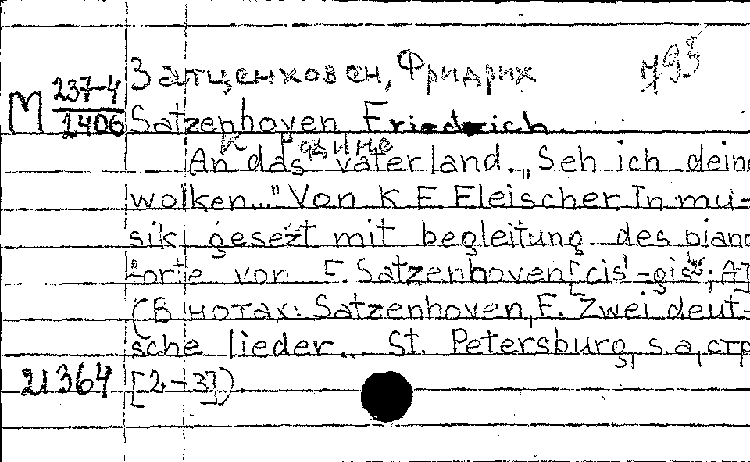 Затценховен, Фридрих
М 237-4
2406
Satzenhoven Friedrich
К Родине
An das vaterland. „Seh ich deine
wolken..." Von K. E. Fleischer In mu-
sik gesezt mit begleitung des piano
forte von F. Satzenhoven [cis¹-gis²; A]
(В нотах: Satzenhoven, F. Zwei deut-
sche lieder... St. Petersburg, s.a, стр
21364 [2-3])